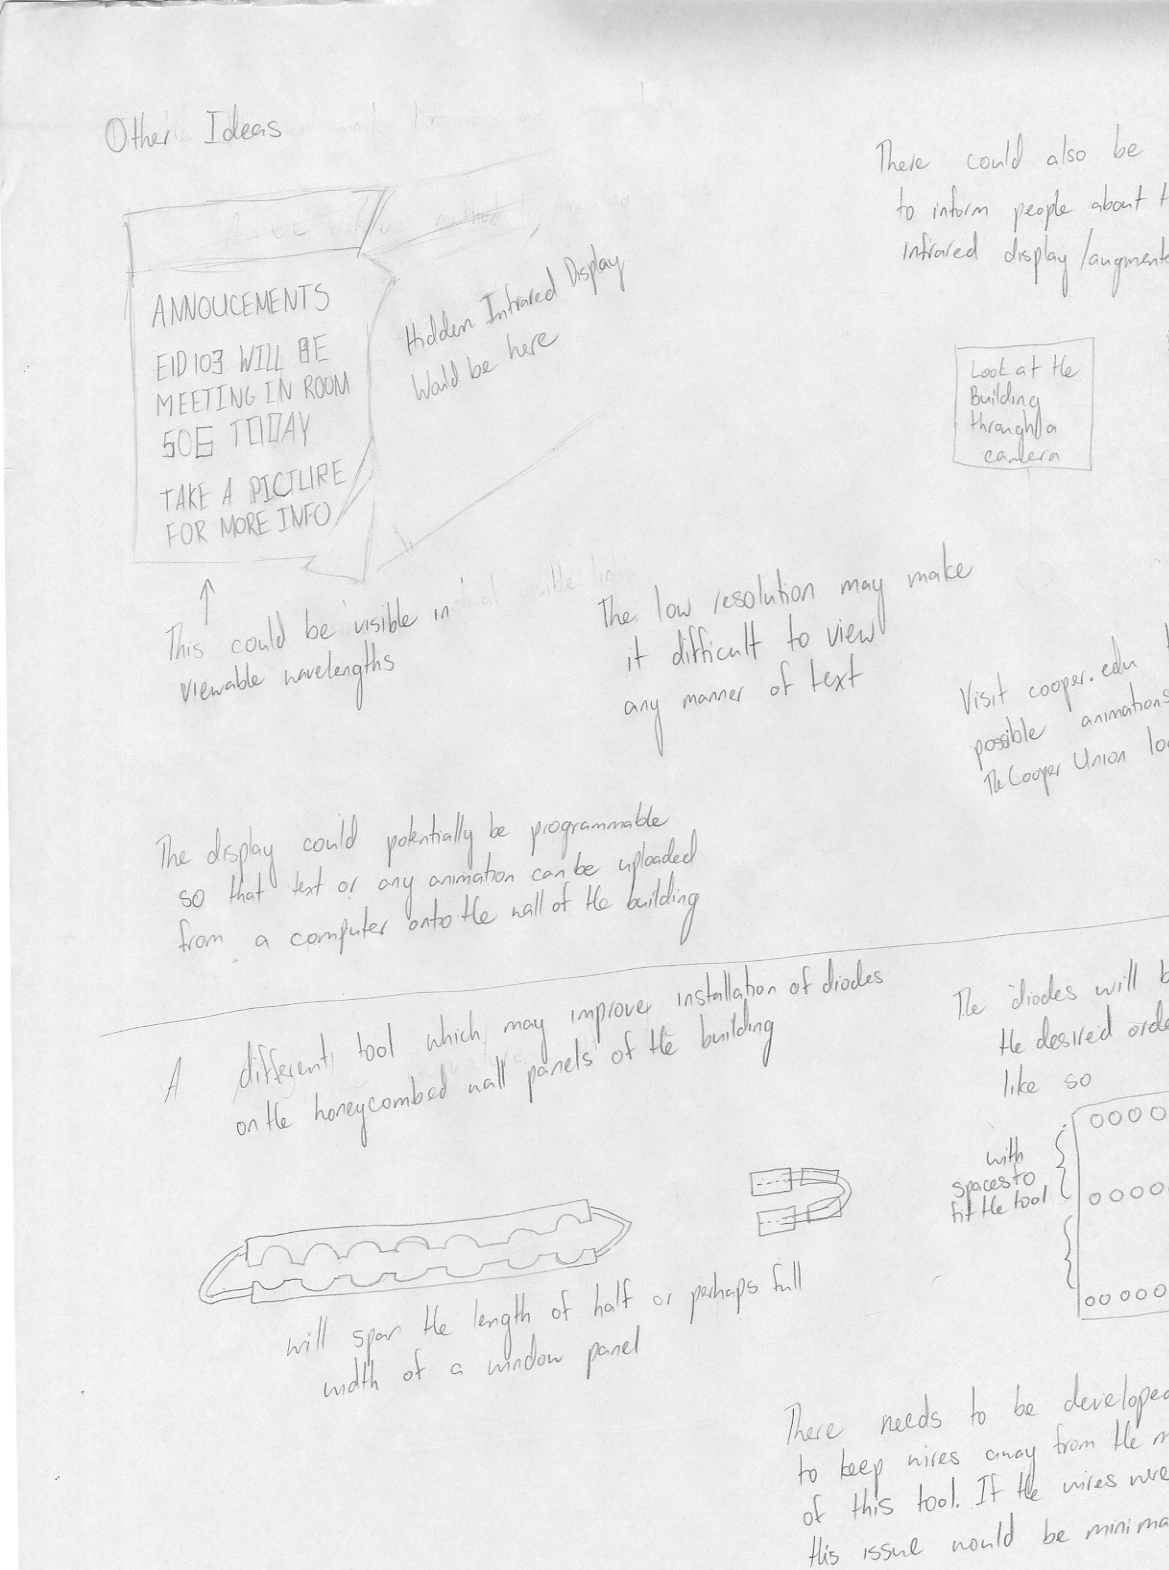 Other Ideas
ANNOUCEMENTS
EID103 WILL BE
MEETING IN ROOM
506 TODAY
TAKE A PICTURE
FOR MORE INFO
Hidden Infrared Display
Would be here
This could be visible in
viewable wavelengths
The low resolution may make
it difficult to view
any manner of text
There could also be
to inform people about
infrared display/augment
Look at the
Building
through a
camera
Visit cooper.edu
possible animations
The Cooper Union
The display could potentially be programmable
so that text or any animation can be uploaded
from a computer onto the wall of the building
A different tool which may improve installation of diodes
on the honeycombed wall panels of the building
will span the length of half or perhaps full
width of a window panel
The diodes will
the desired
like so
with
spaces to
fit the tool
There needs to be developed
to keep wires away from the
of this tool. If the wires were
this issue would be